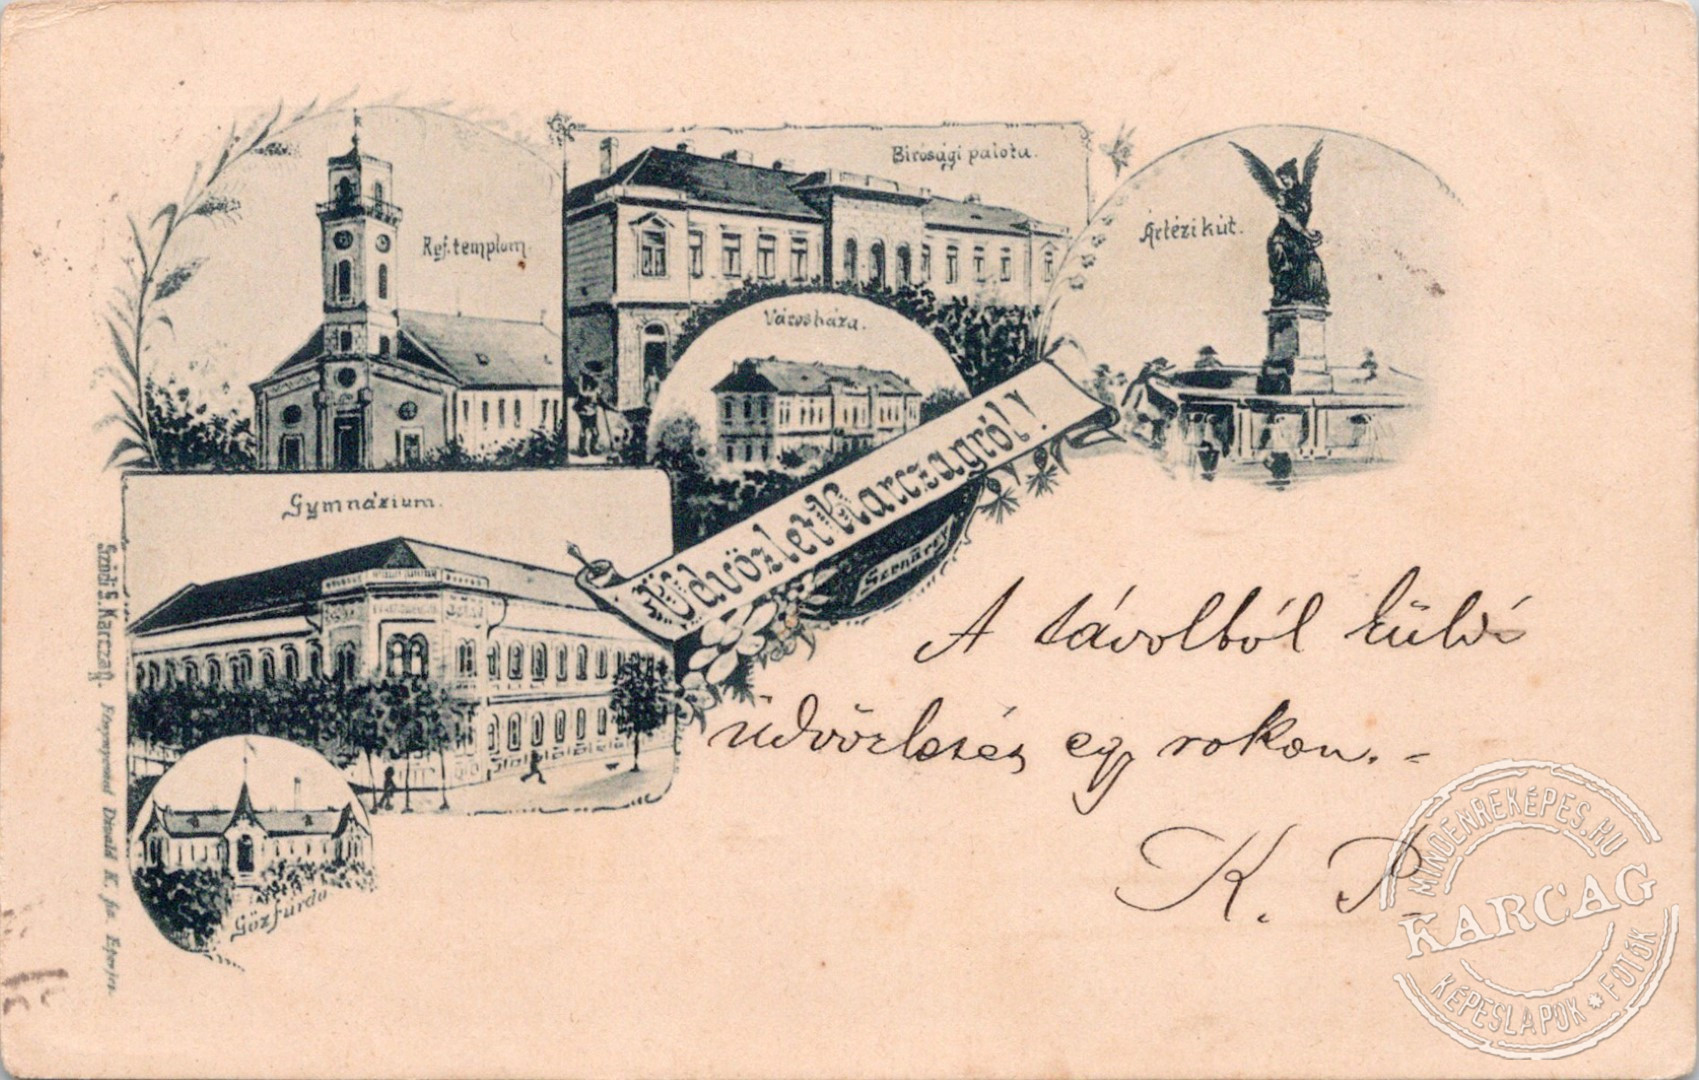 Ref. templom.
Birosági palota.
Ártézi kút.
Városháza.
Üdvözlet Karczagról!
Gymnázium.
Gőzfürdő
Sződi S. Karczag. Fénynyomat Divald K. fia. Eperjes.
A távolból küldi
üdvözletét egy rokon. -
K. P.
MINDENREKÉPES.HU
KARCAG
KÉPESLAPOK * FOTÓK